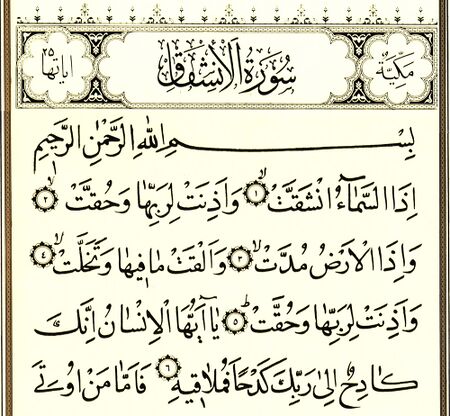 مكية سورة الانشقاق اياتها ٢٥
بِسْمِ اللهِ الرَّحْمٰنِ الرَّحِيمِ
اِذَا السَّمَاۤءُ انْشَقَّتْۙ ١ وَاَذِنَتْ لِرَبِّهَا وَحُقَّتْۙ ٢
وَاِذَا الْاَرْضُ مُدَّتْۙ ٣ وَاَلْقَتْ مَا فِيهَا وَتَخَلَّتْۙ ٤
وَاَذِنَتْ لِرَبِّهَا وَحُقَّتْۜ ٥ يَاۤ اَيُّهَا الْاِنْسَانُ اِنَّكَ
كَادِحٌ اِلٰى رَبِّكَ كَدْحًا فَمُلَاقِيهِۚ ٦ فَاَمَّا مَنْ اُو۫تِيَ